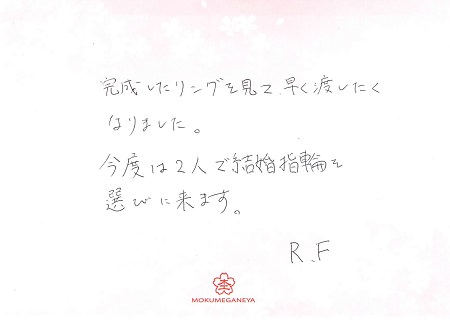 完成したリングを見て早く渡したく
なりました。
今度は2人で結婚指輪を
選びに来ます。
R.F
MOKUMEGANEYA